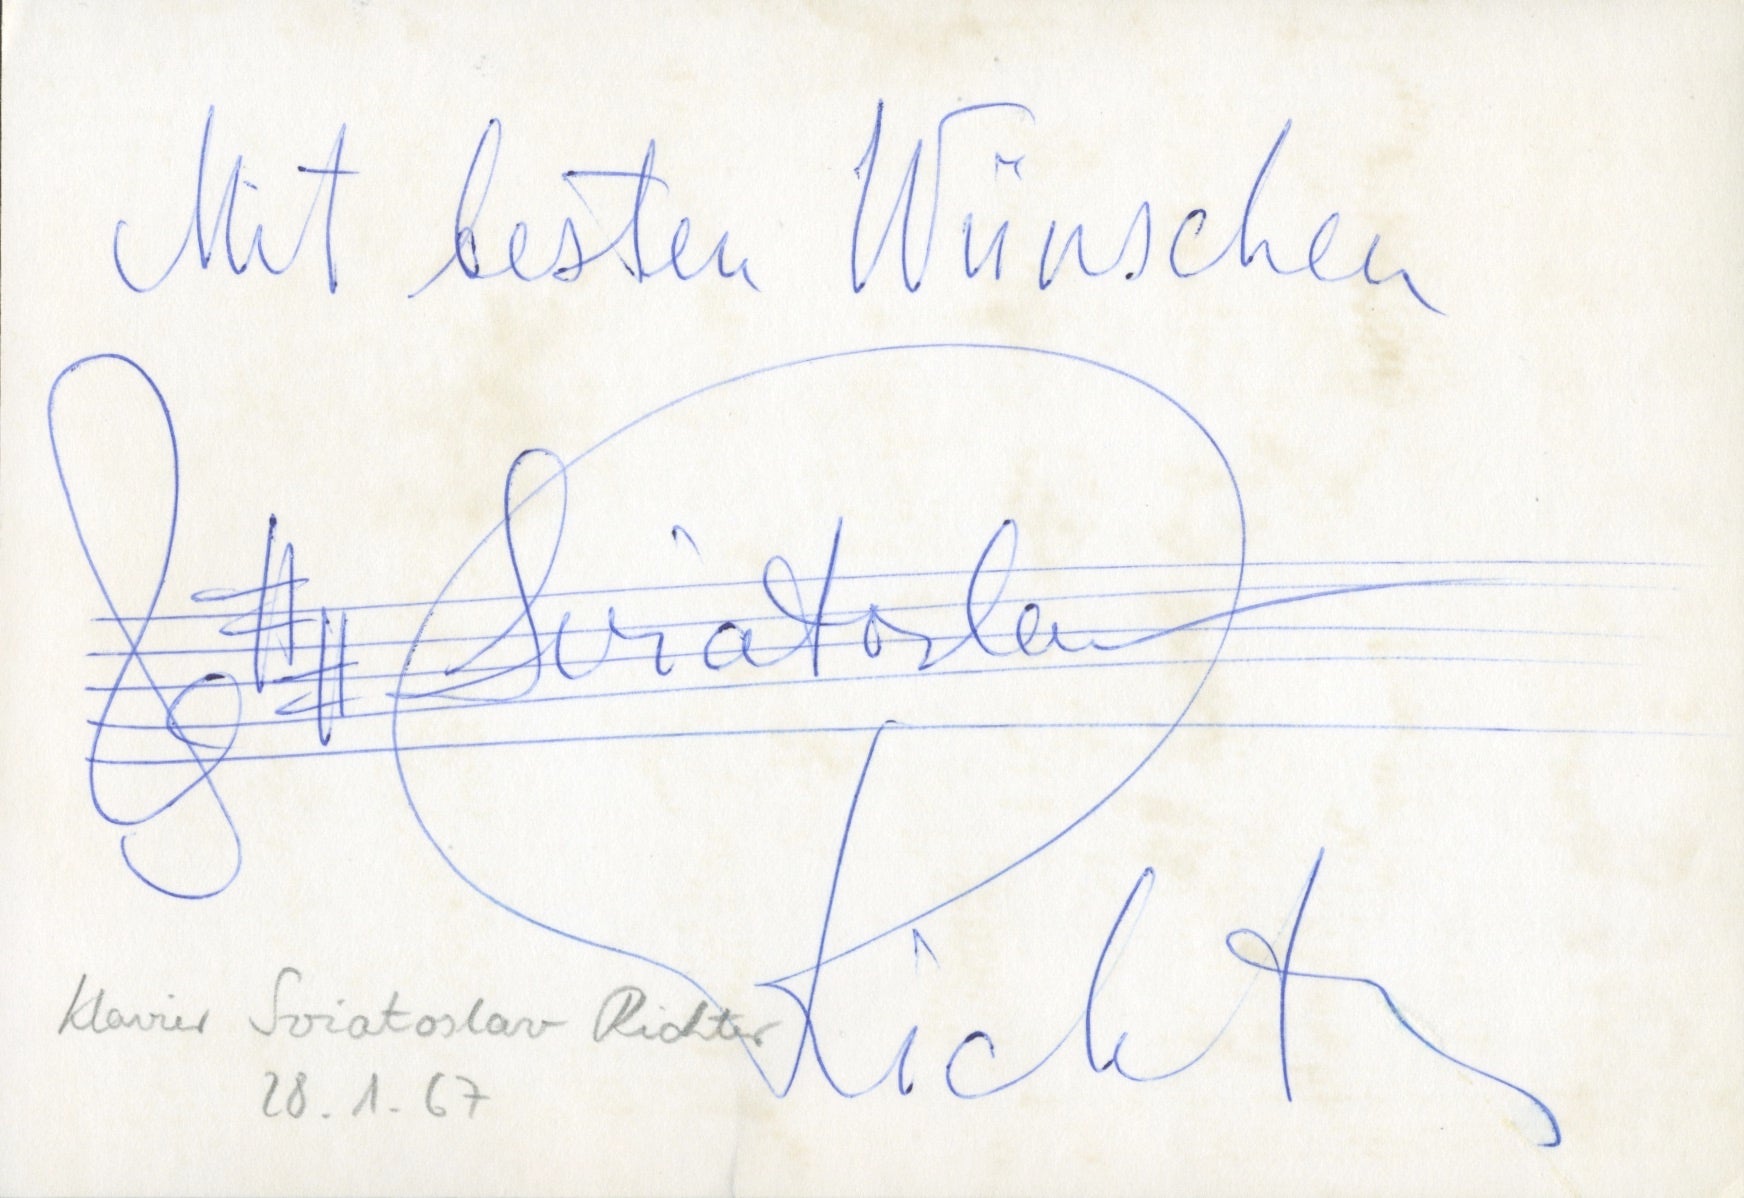 Mit besten Wünschen
Sviatoslav
Richter
Klavier Sviatoslav Richter
28.1.67